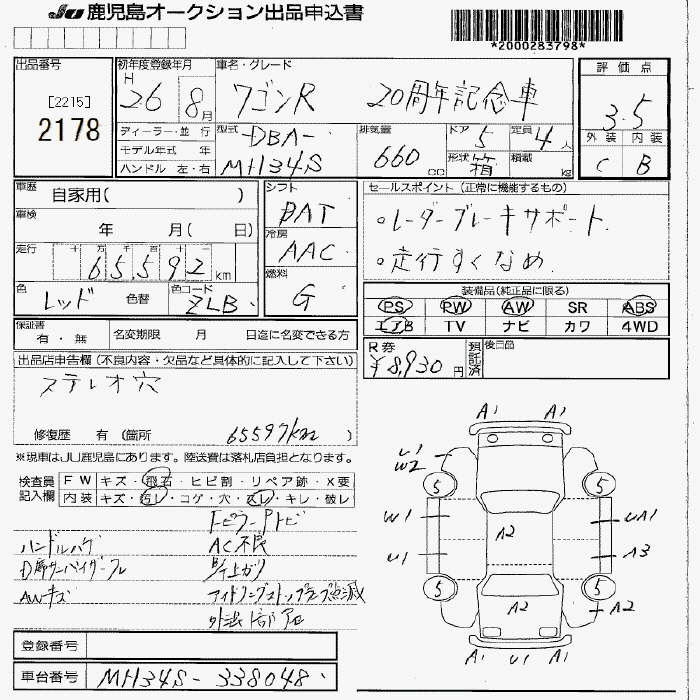 JU 鹿児島オークション出品申込書
*2000283798*
出品番号
[2215]
2178
初年度登録年月
H 26 8月
車名・グレード
ワゴンR 20周年記念車
評価点
3.5
外装 内装
C B
ディーラー・並 行
モデル年式 年
ハンドル 左・右
型式
DBA-
MH34S
排気量
660 cc
ドア 5
定員 4人
形状 箱
積載 kg
車歴
自家用( )
車検
年 月( 日)
走行
十 万 千 百 十 一
65,592 km
色
レッド 色替
色コード
ZLB
シフト
DAT
冷房
AAC
燃料
G
セールスポイント(正常に機能するもの)
。レーダーブレーキサポート
。走行すくなめ
装備品(純正品に限る)
PS PW AW SR ABS
エアB TV ナビ カワ 4WD
保証書
有・無 名変期限 月 日迄に名変できる方
R券
¥8,930円
預託済
後日品
出品店申告欄(不良内容・欠品など具体的に記入して下さい)
ステレオ穴
修復歴 有(箇所 65597km )
※現車はJU鹿児島にあります。陸送費は落札店負担となります。
検査員記入欄
FW キズ・飛石・ヒビ割・リペア跡・X要
内装 キズ・汚レ・コゲ・穴・スレ・キレ・破レ
ハンドルハゲ
AC不良
AWキズ
アイドリングストップランプ点滅
登録番号
車台番号 MH34S-338048
A1 A1
U1
W2
5 5
W1 A2 UA1
U1 A3
5 5
A2 A2
A1 U1 A1